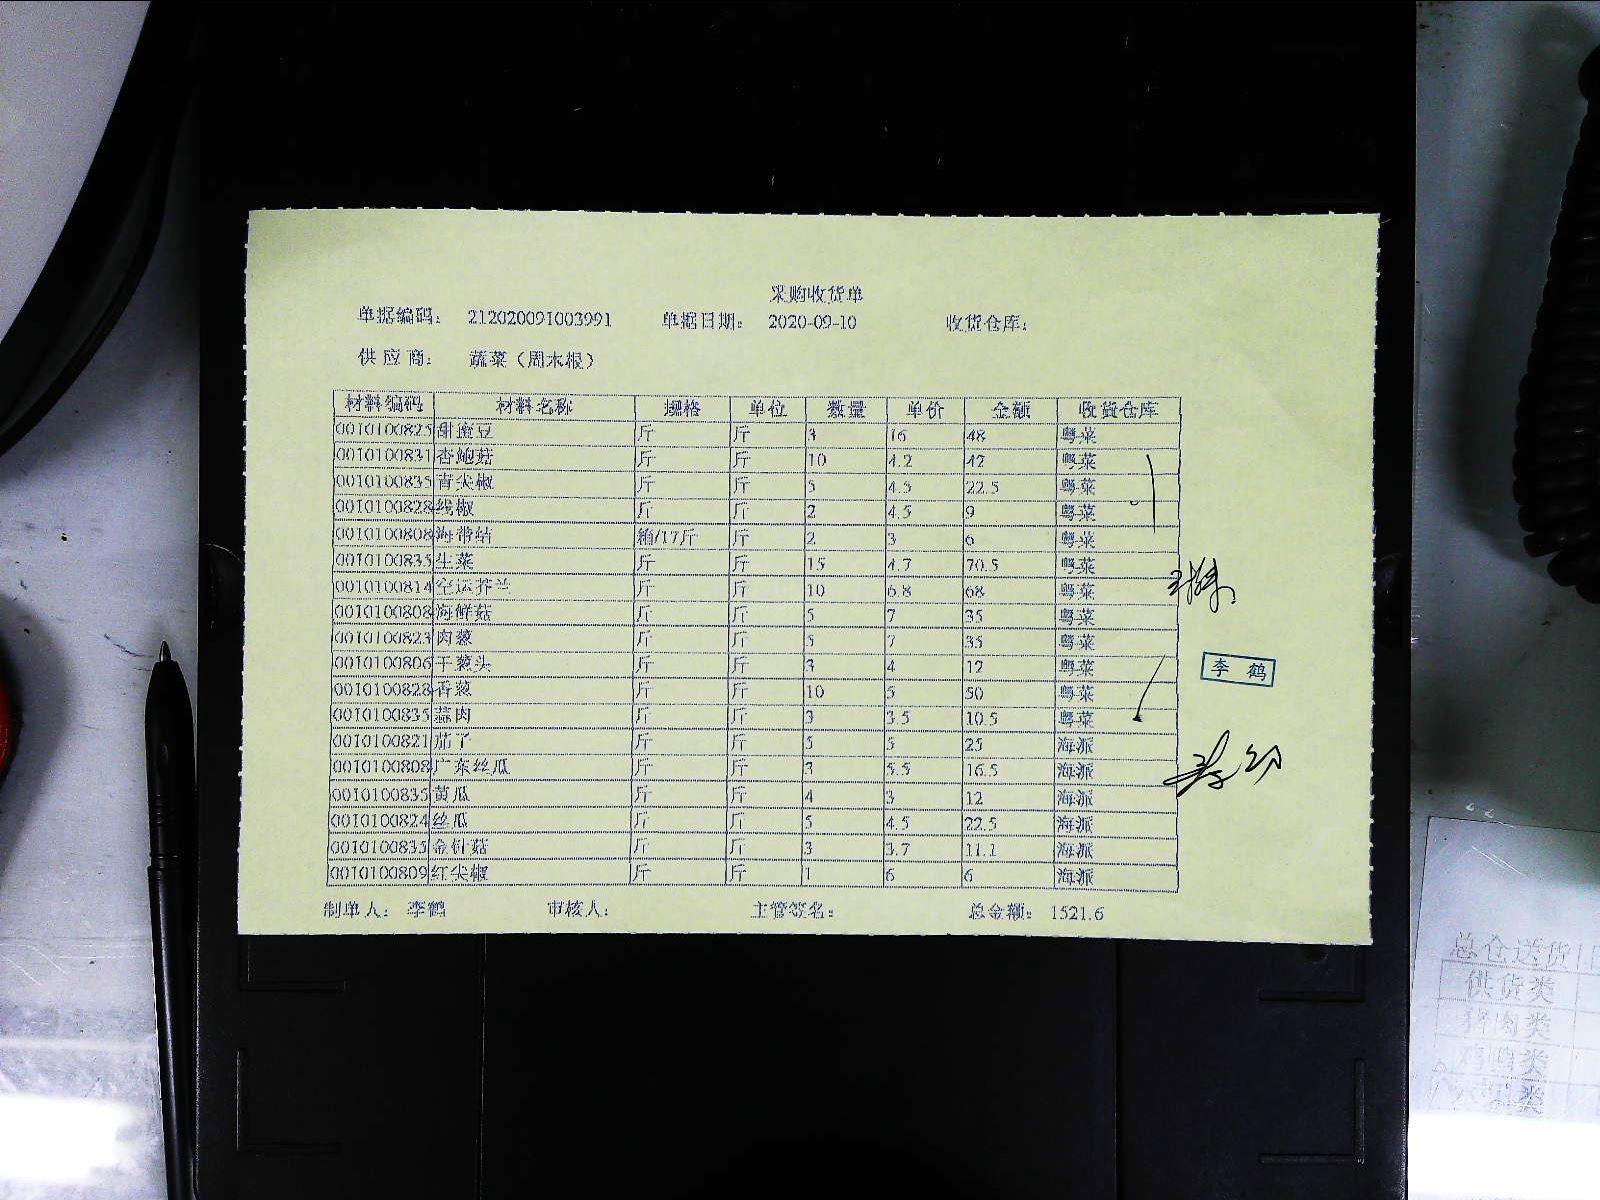 采购收货单
单据编码： 212020091003991 单据日期： 2020-09-10 收货仓库：
供应商： 蔬菜（周木根）
材料编码 材料名称 规格 单位 数量 单价 金额 收货仓库
0010100825 甜蜜豆 斤 斤 3 16 48 粤菜
0010100831 杏鲍菇 斤 斤 10 4.2 42 粤菜
0010100835 青尖椒 斤 斤 5 4.5 22.5 粤菜
0010100828 线椒 斤 斤 2 4.5 9 粤菜
0010100808 海带结 箱/17斤 斤 2 3 6 粤菜
0010100835 生菜 斤 斤 15 4.7 70.5 粤菜
0010100814 空运芥兰 斤 斤 10 6.8 68 粤菜
0010100808 海鲜菇 斤 斤 5 7 35 粤菜
0010100823 肉葱 斤 斤 5 7 35 粤菜
0010100806 干葱头 斤 斤 3 4 12 粤菜
0010100828 香葱 斤 斤 10 5 50 粤菜
0010100835 蒜肉 斤 斤 3 3.5 10.5 粤菜
0010100821 茄子 斤 斤 5 5 25 海派
0010100808 广东丝瓜 斤 斤 3 5.5 16.5 海派
0010100835 黄瓜 斤 斤 4 3 12 海派
0010100824 丝瓜 斤 斤 5 4.5 22.5 海派
0010100835 金针菇 斤 斤 3 3.7 11.1 海派
0010100809 红尖椒 斤 斤 1 6 6 海派
制单人： 李鹤 审核人： 主管签名： 总金额： 1521.6
李 鹤
总仓送货
供货类
猪肉类